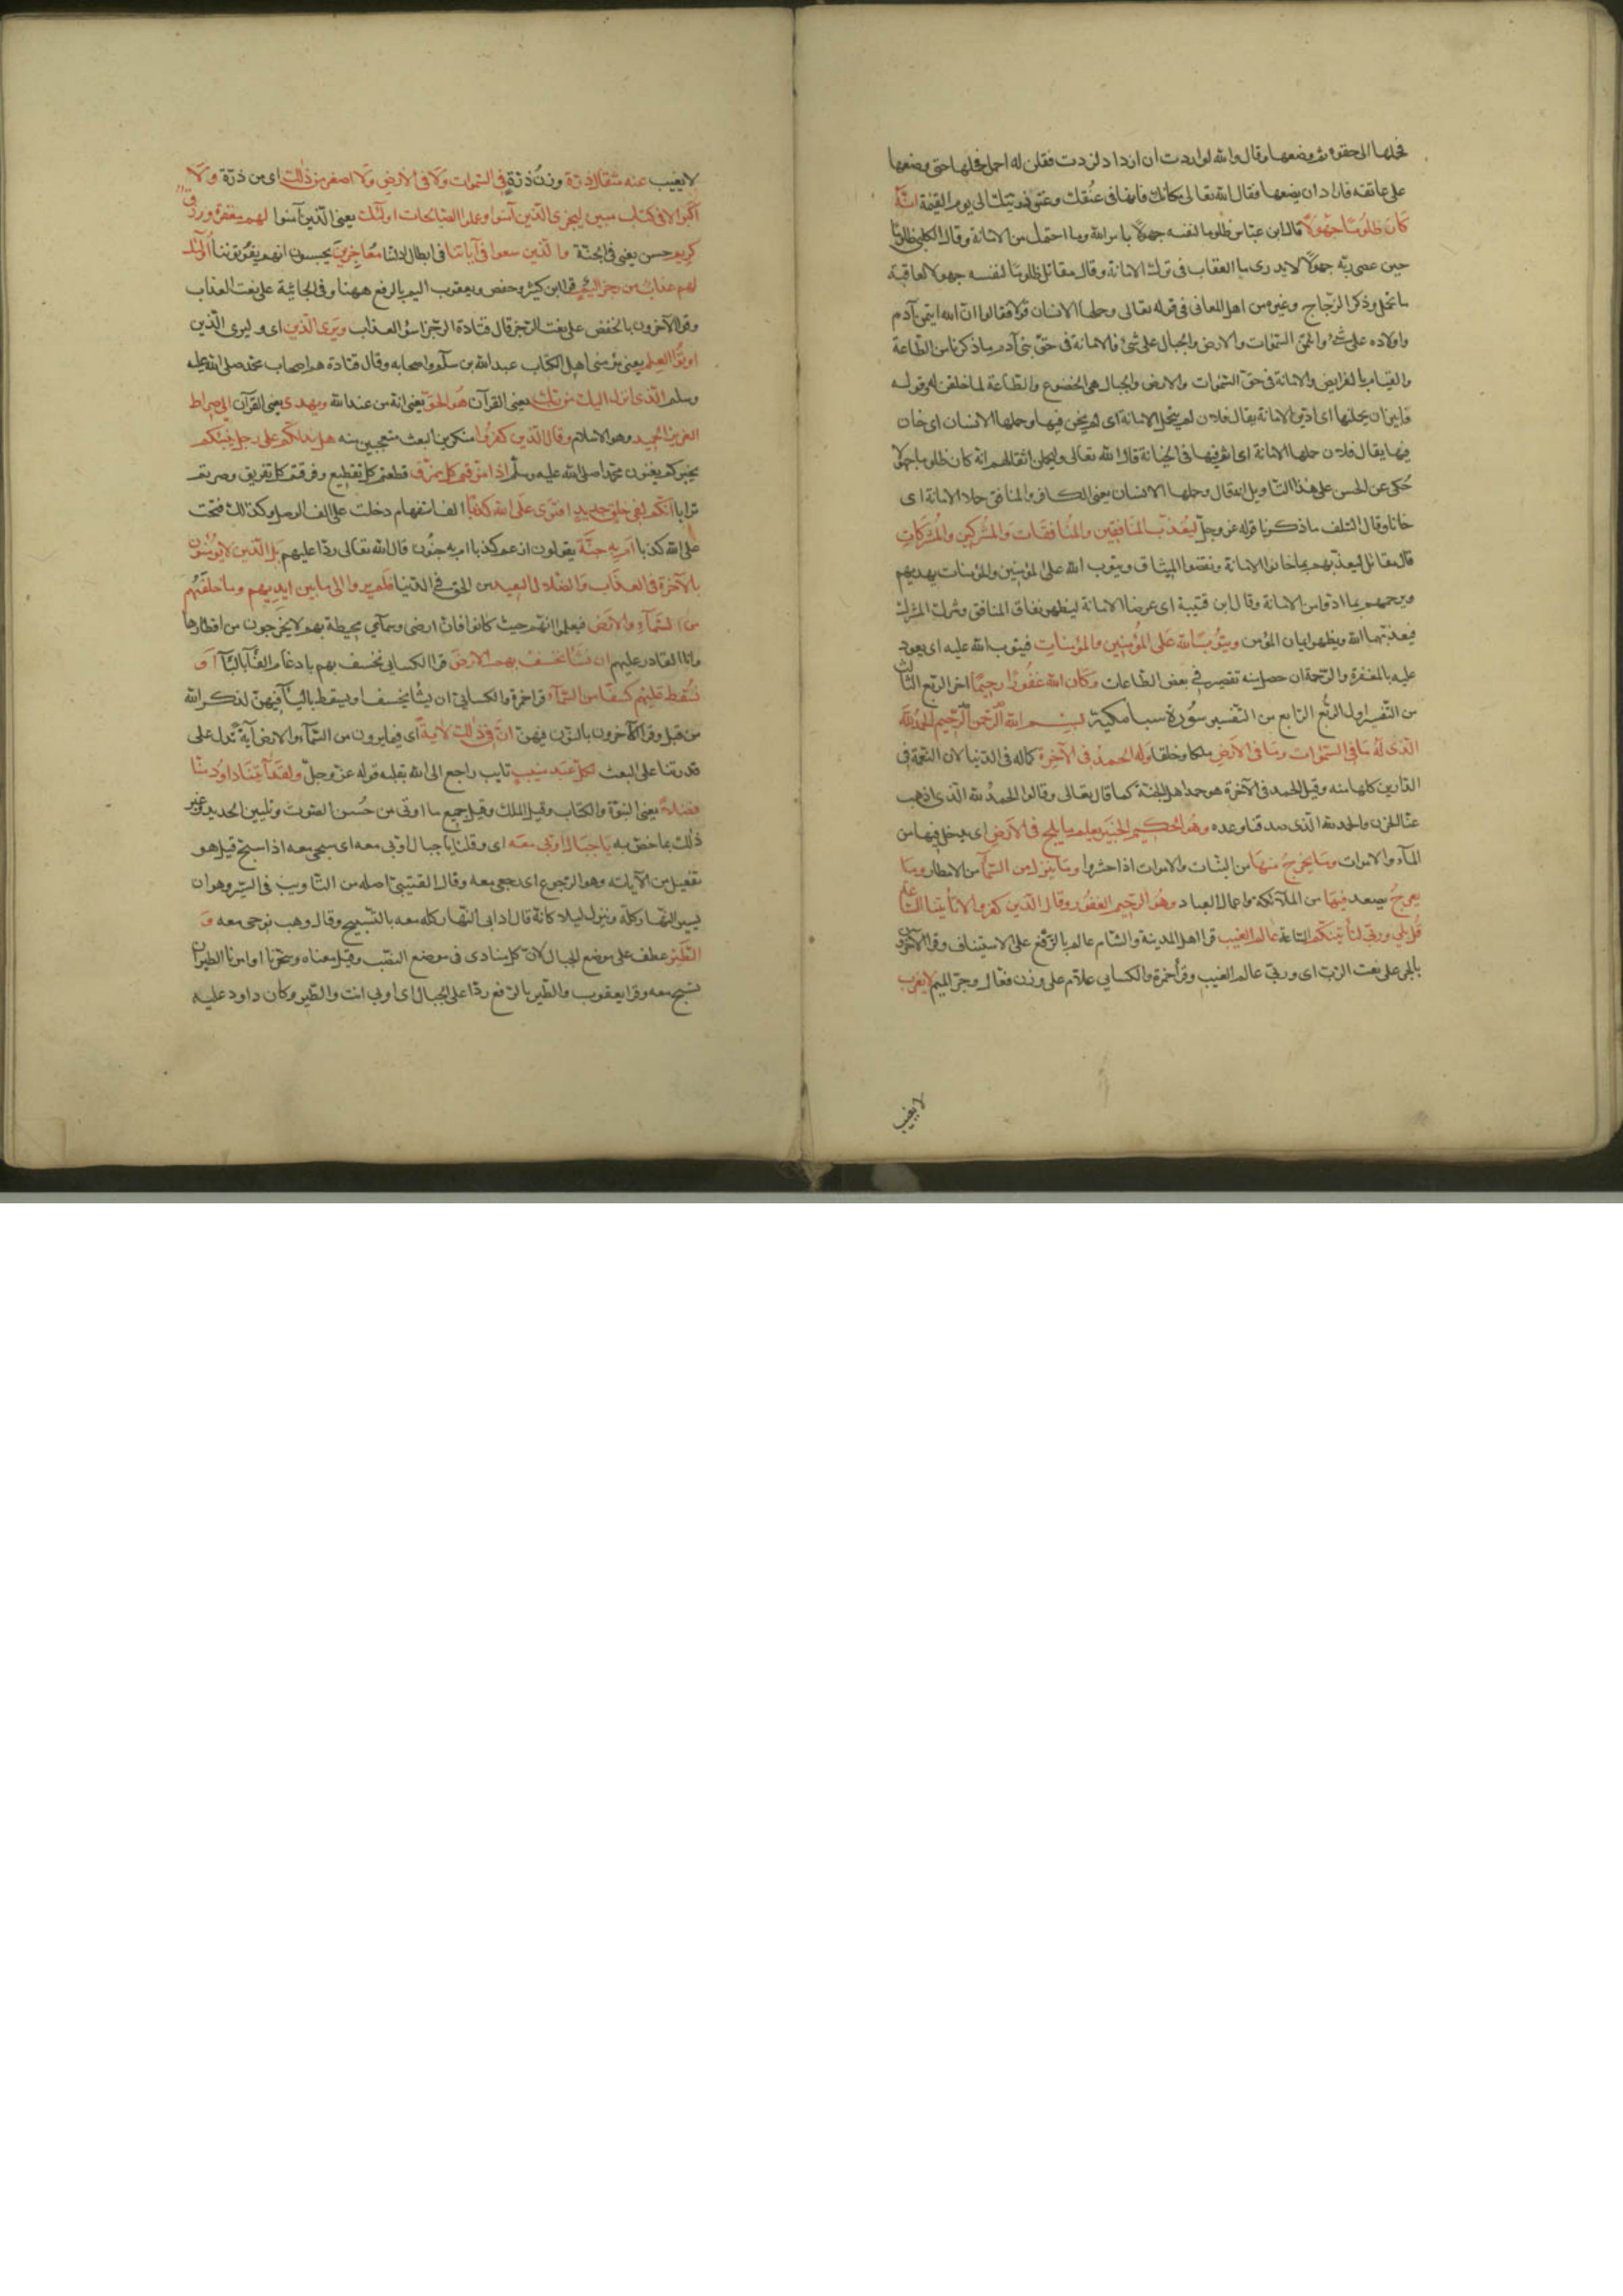 فحملها الى حقوه ثم وضعها وقال والله لو اردت ان ازداد لزدت فقلن له احمل فحملها حتى وضعها
على عاتقه فاراد ان يضعها فقال الله تعالى مكانك فانها فى عنقك وعنق ذريتك الى يوم القيمة انه
كان ظلوما جهولا قال ابن عباس ظلوما لنفسه جهولا بامر الله وما احتمل من الامانة وقال الكلبى ظلوما
حين عصى ربه جهولا لا يدرى ما العقاب فى ترك الامانة وقال مقاتل ظلوما لنفسه جهولا لعاقبة
ما تحمل وذكر الزجاج وغيره من اهل المعانى فى قوله تعالى وحملها الانسان قولا فقالوا ان الله ايتمن آدم
واولاده على شئ وائتمن السموات والارض والجبال على شئ فالامانة فى حق بنى آدم ما ذكرنا من الطاعة
والقيام بالفرايض والامانة فى حق السموات والارض والجبال هى الخضوع والطاعة لما خلقن له وقوله
فابين ان يحملنها اى ادين الامانة يقال فلان لم يتحمل الامانة اى لم يخن فيها وحملها الانسان اى خان
فيها يقال فلان حمل الامانة اى اثم فيها فى الخيانة قال الله تعالى وليحملن اثقالهم انه كان ظلوما جهولا
حكى عن الحسن على هذا التاويل انه قال وحملها الانسان يعنى الكافر والمنافق حملا الامانة اى
خانا وقال السلف ما ذكرنا قوله عز وجل ليعذب المنافقين والمنافقات والمشركين والمشركات
قال مقاتل ليعذبهم بما خانوا الامانة ونقضوا الميثاق ويتوب الله على المؤمنين والمؤمنات يهديهم
ويرحمهم بما ادوا من الامانة وقال ابن قتيبة اى عرضنا الامانة ليظهر نفاق المنافق وشرك المشرك
فيعذبهما الله ويظهر ايمان المؤمن ويتوب الله على المؤمنين والمؤمنات فيتوب الله عليه اى يعود
عليه بالمغفرة والرحمة ان حصل منه تقصير فى بعض الطاعات وكان الله غفورا رحيما اخر الربع الثالث
من التفسير اول الربع الرابع من التفسير سورة سبا مكية بسم الله الرحمن الرحيم الحمد لله
الذى له ما فى السموات وما فى الارض ملكا وخلقا وله الحمد فى الآخرة كما له فى الدنيا لان النعمة فى
الدارين كلها منه وقيل الحمد فى الآخرة هو حمد اهل الجنة كما قال تعالى وقالوا الحمد لله الذى اذهب
عنا الحزن والحمد لله الذى صدقنا وعده وهو الحكيم الخبير يعلم ما يلج فى الارض اى يدخل فيها من
الماء والاموات وما يخرج منها من النبات والاموات اذا حشروا وما ينزل من السمآء من الامطار وما
يعرج يصعد فيها من الملآئكة واعمال العباد وهو الرحيم الغفور وقال الذين كفروا لا تأتينا الساعة
قل بلى وربى لتأتينكم الساعة عالم الغيب قرا اهل المدينة والشام عالم بالرفع على الاستيناف وقرا الآخرون
بالجر على نعت الرب اى وربى عالم الغيب وقرأ حمزة والكسايى علام على وزن فعال وجر الميم لا يعزب
لا يغيب
لا يغيب عنه مثقال ذرة وزن ذرة فى السموات ولا فى الارض ولا اصغر من ذلك اى من ذرة ولا
اكبر الا فى كتاب مبين ليجزى الذين آمنوا وعملوا الصالحات اولئك يعنى الذين آمنوا لهم مغفرة ورزق
كريم حسن يعنى فى الجنة والذين سعوا فى آياتنا فى ابطال ادلتنا معاجزين يحسبون انهم يفوتوننا اولئك
لهم عذاب من رجز اليم قرا ابن كثير وحفص ويعقوب اليم بالرفع ههنا وفى الجاثية على نعت العذاب
وقرا الآخرون بالخفض على نعت الرجز قال قتادة الرجز اسوأ العذاب ويرى الذين اى وليرى الذين
اوتوا العلم يعنى مؤمنى اهل الكتاب عبد الله بن سلام واصحابه وقال قتادة هم اصحاب محمد صلى الله عليه
وسلم الذى انزل اليك من ربك يعنى القرآن هو الحق يعنى انه من عند الله ويهدى يعنى القرآن الى صراط
العزيز الحميد وهو الاسلام وقال الذين كفروا منكرين البعث متعجبين منه هل ندلكم على رجل ينبئكم
يخبركم يعنون محمدا صلى الله عليه وسلم اذا مزقتم كل ممزق قطعتم كل تقطيع وفرقتم كل تفريق وصرتم
ترابا انكم لفى خلق جديد افترى على الله كذبا الف استفهام دخلت على الف الوصل وكذلك فتحت
على الله كذبا ام به جنة يقولون ازعم كذبا ام به جنون قال الله تعالى ردا عليهم بل الذين لا يؤمنون
بالآخرة فى العذاب والضلال البعيد من الحق فى الدنيا فلم يروا الى ما بين ايديهم وما خلفهم
من السمآء والارض فيعلموا انهم حيث كانوا فان ارضى وسمآئى محيطة بهم لا يخرجون من اقطارها
وانا القادر عليهم ان نشأ نخسف بهم الارض قرا الكسايى نخسف بهم بادغام الفآ بالبآ او
نسقط عليهم كسفا من السمآء قرا حمزة والكسايى ان يشأ يخسف او يسقط باليآ فيهن لذكر الله
من قبل وقرا الآخرون بالنون فيهن ان فى ذلك لآية اى فيما يرون من السمآء والارض آية تدل على
قدرتنا على البعث لكل عبد منيب تايب راجع الى الله بقلبه قوله عز وجل ولقد آتينا داود منا
فضلا يعنى النبوة والكتاب وقيل الملك وقيل جميع ما اوتى من حسن الصوت وتليين الحديد وغير
ذلك بما خص به يا جبال اوبى معه اى وقلنا يا جبال اوبى معه اى سبحى معه اذا سبح قيل هو
تفعيل من الاياب وهو الرجوع اى رجعى معه وقال القتيبى اصله من التاويب فى السير وهو ان
يسير النهار كله وينزل ليلا كانه قال ادابى النهار كله معه بالتسبيح وقال وهب نوحى معه و
الطير عطف على موضع الجبال لان كل منادى فى موضع النصب وقيل معناه وسخرنا او امرنا الطير ان
تسبح معه وقرا يعقوب والطير بالرفع ردا على الجبال اى اوبى انت والطير وكان داود عليه